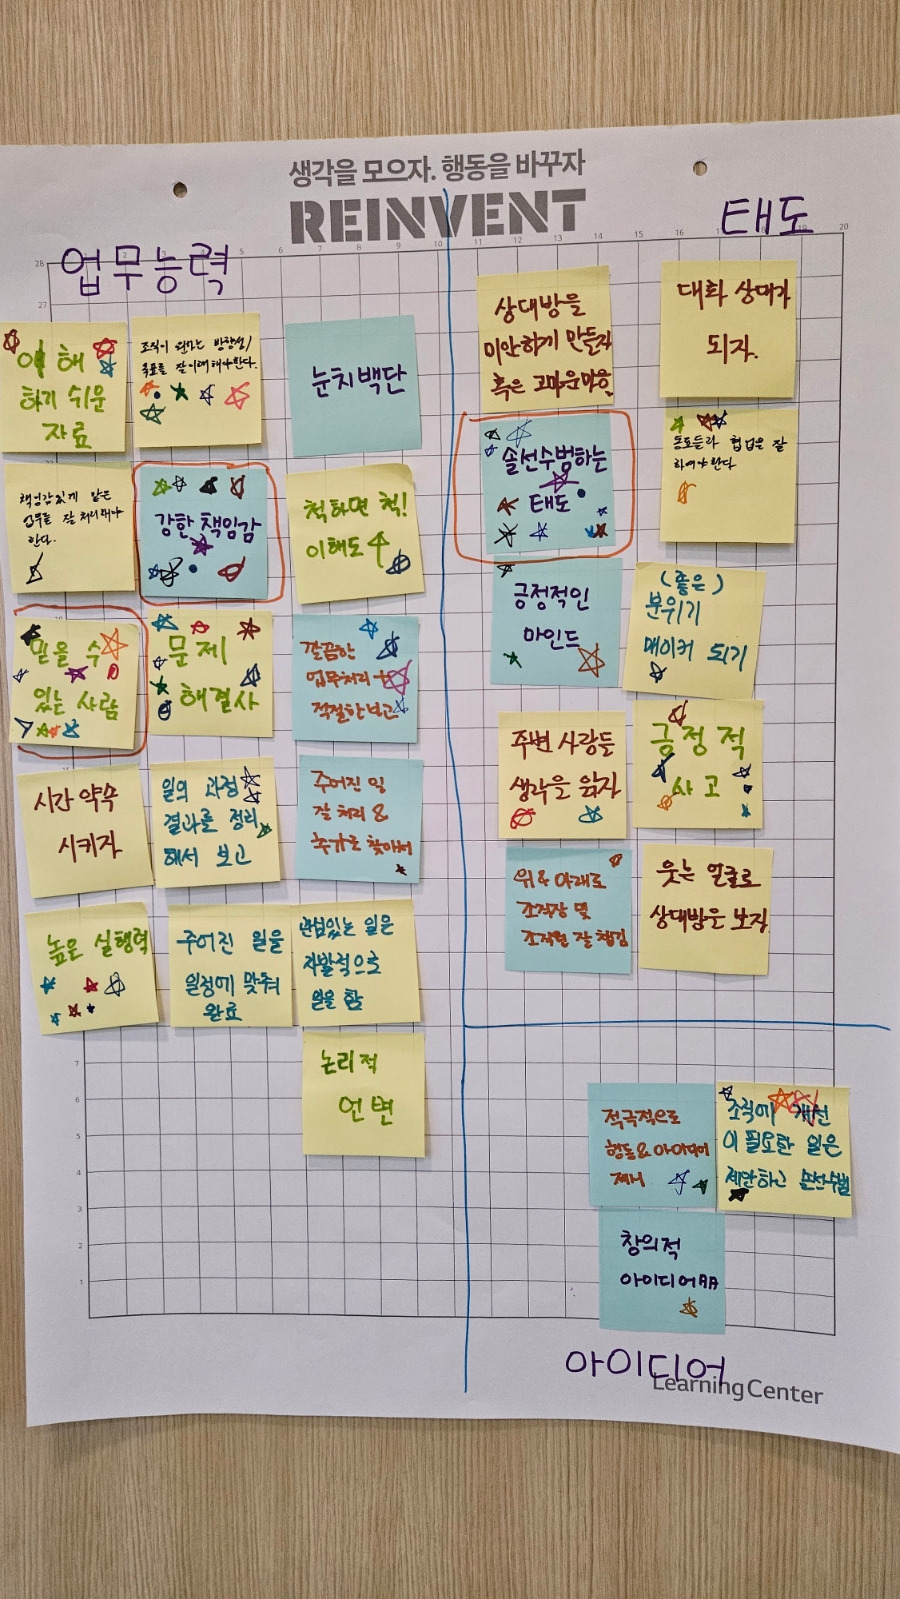 생각을 모으자. 행동을 바꾸자
REINVENT
업무능력
이해
하기 쉬운
자료
조직이 원하는 방향성/
목표를 잘 이해해야한다.
눈치백단
책임감있게 맡은
업무를 잘 처리해야
한다.
강한 책임감
척하면 척!
이해도↑
믿을 수
있는 사람
문제
해결사
깔끔한
업무처리 +
적절한 보고
시간 약속
시키자
일의 과정
결과를 정리
해서 보고
주어진 일
잘 처리 &
추가로 찾아서
높은 실행력
주어진 일을
일정에 맞춰
완료
관심있는 일은
자발적으로
일을 함
논리적
언변
태도
상대방을
미안하게 만들자
혹은 고마운마음.
대화 상대가
되자.
솔선수범하는
태도
동료들과 협업을 잘
하여야 한다
긍정적인
마인드
(좋은)
분위기
메이커 되기
주변 사람들
생각을 읽자
긍정적
사고
위&아래로
조직장 및
조직원 잘 챙김
웃는 얼굴로
상대방을 보자
적극적으로
행동&아이디어
제시
조직에 개선
이 필요한 일은
제안하고 솔선수범
창의적
아이디어
아이디어
Learning Center
28
27
20
19
16
15
14
13
12
11
10
9
8
7
7
6
5
4
3
2
1